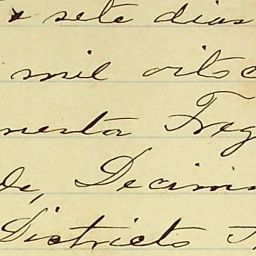 sete dias
mil oitoc
nesta Freg
de, Decimo
Districto